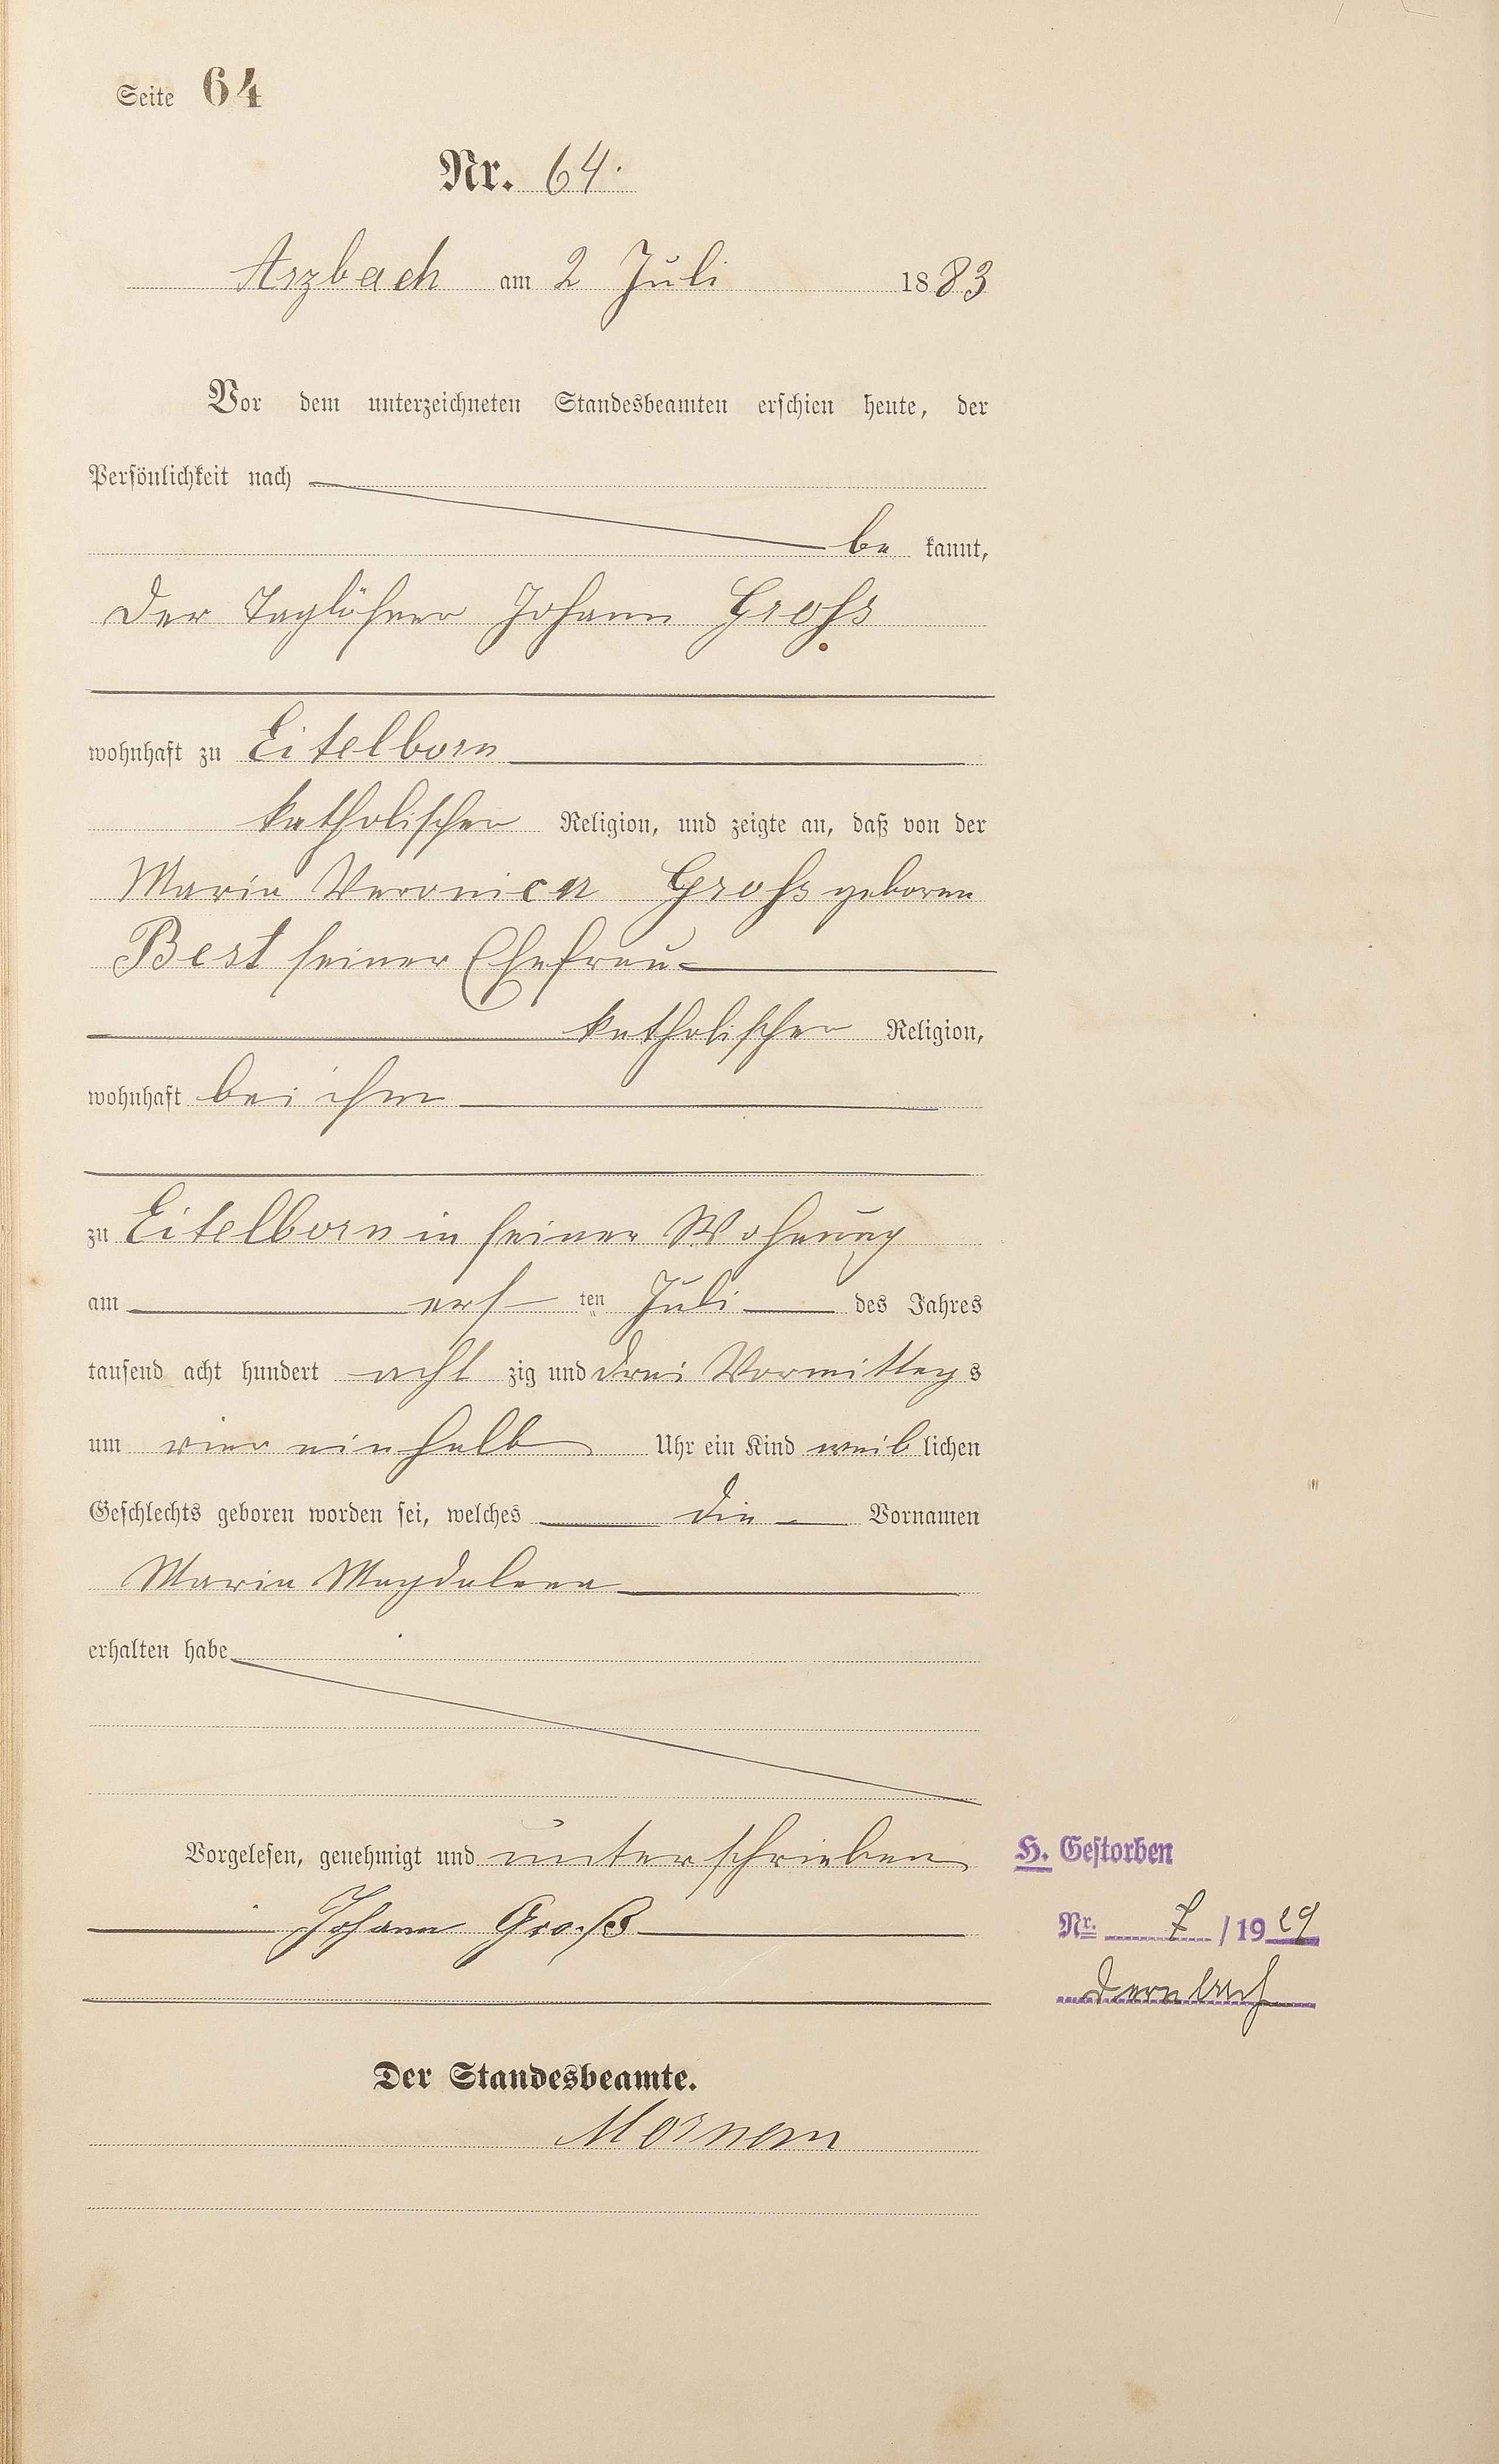 Seite 64
Nr. 64.
Arzbach am 2 Juli 1883
Vor dem unterzeichneten Standesbeamten erschien heute, der
Persönlichkeit nach
be kannt,
Der Taglöhner Johann Groſs
wohnhaft zu Eitelborn
katholischer Religion, und zeigte an, daß von der
Maria Veronica Groſs geboren
Best seiner Ehefrau
katholischer Religion,
wohnhaft bei ihm
zu Eitelborn in seiner Wohnung
am ers ten Juli des Jahres
tausend acht hundert acht zig und drei Vormittags
um vier ein halb Uhr ein Kind weib lichen
Geschlechts geboren worden sei, welches die Vornamen
Maria Magdalena
erhalten habe
Vorgelesen, genehmigt und unterschrieben
Johann Groß
H. Gestorben
Nr. 7 / 1929
Dernbach
Der Standesbeamte.